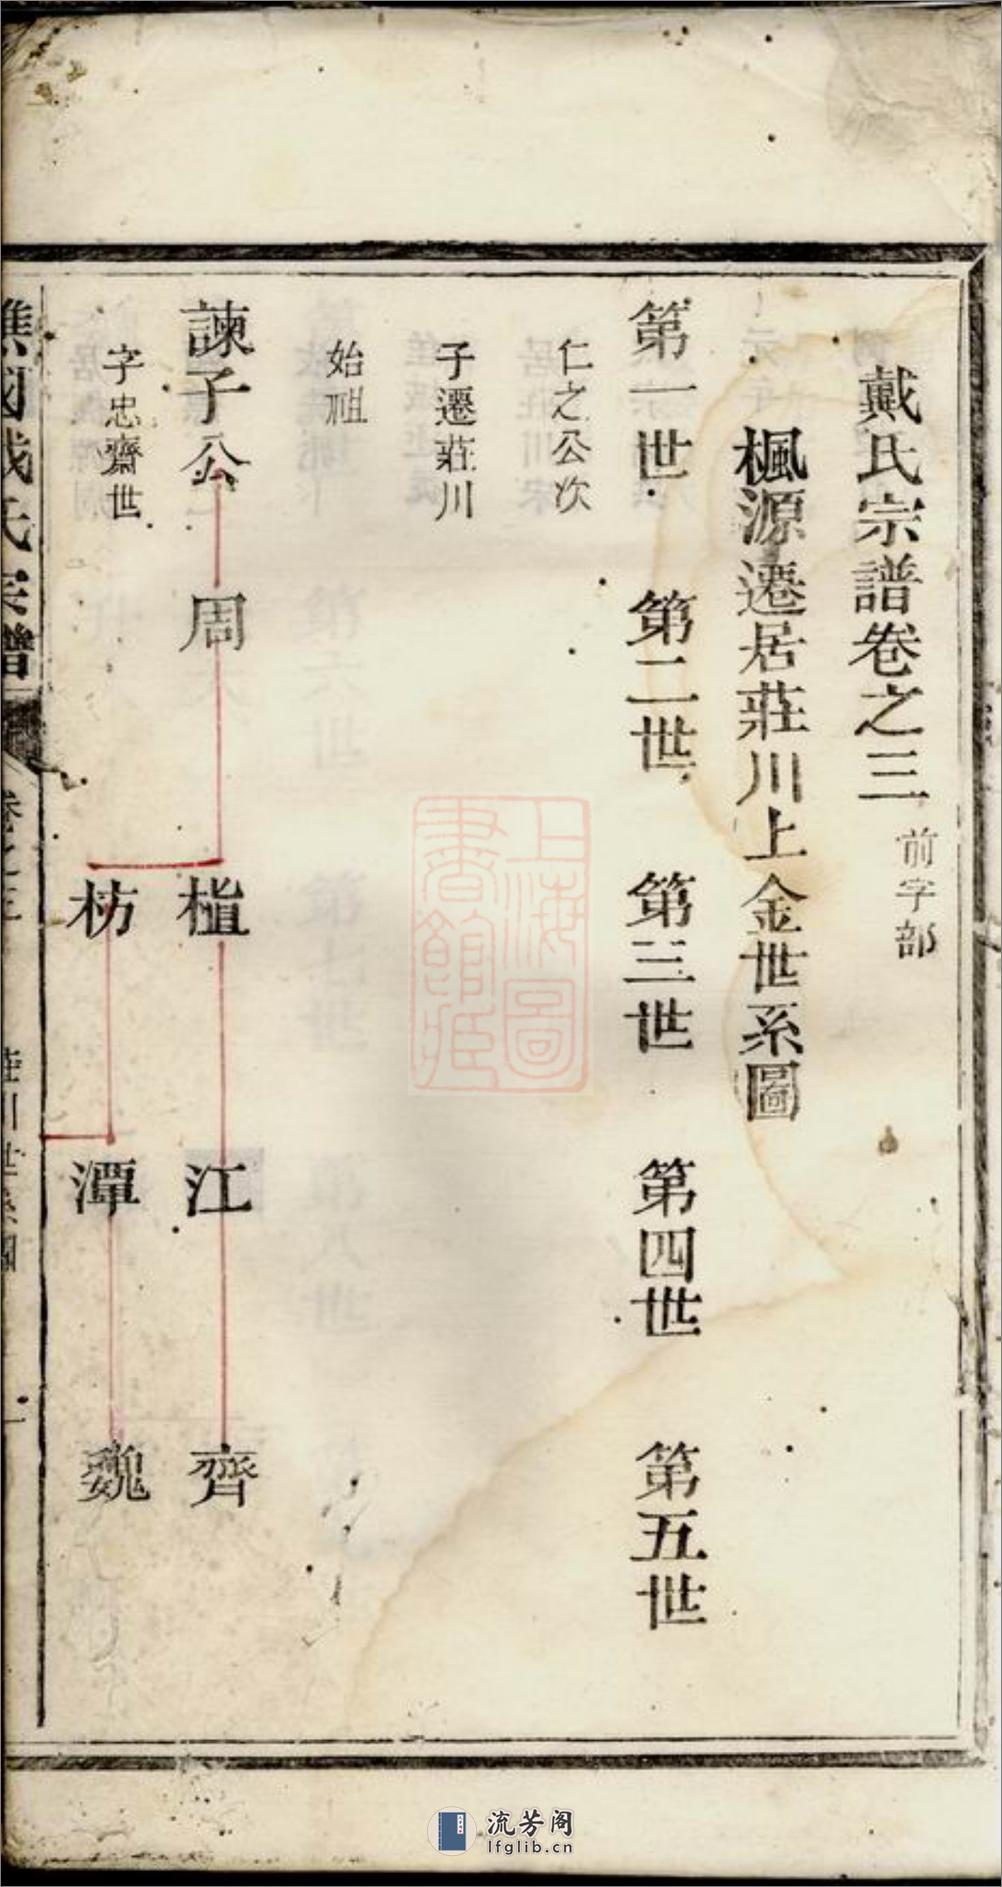 戴氏宗譜卷之三 前字部
楓源遷居莊川上金世系圖
第一世 第二世 第三世 第四世 第五世
仁之公次
子遷莊川
始祖
諫子公 周 植 江 齊
字忠齋世 枋 潭 魏
譙國戴氏宗譜 卷之三 莊川世系圖 一
上海圖書館藏
流芳阁
lfglib.cn